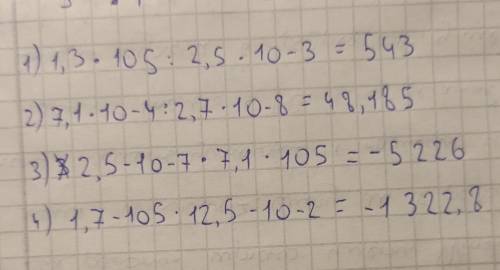 1) 1,3 · 105 : 2,5 · 10 - 3 = 543
2) 7,1 · 10 - 4 : 2,7 · 10 - 8 = 48,185
3) 2,5 - 10 - 7 · 7,1 · 105 = - 5 226
4) 1,7 - 105 · 12,5 - 10 - 2 = - 1 322,8